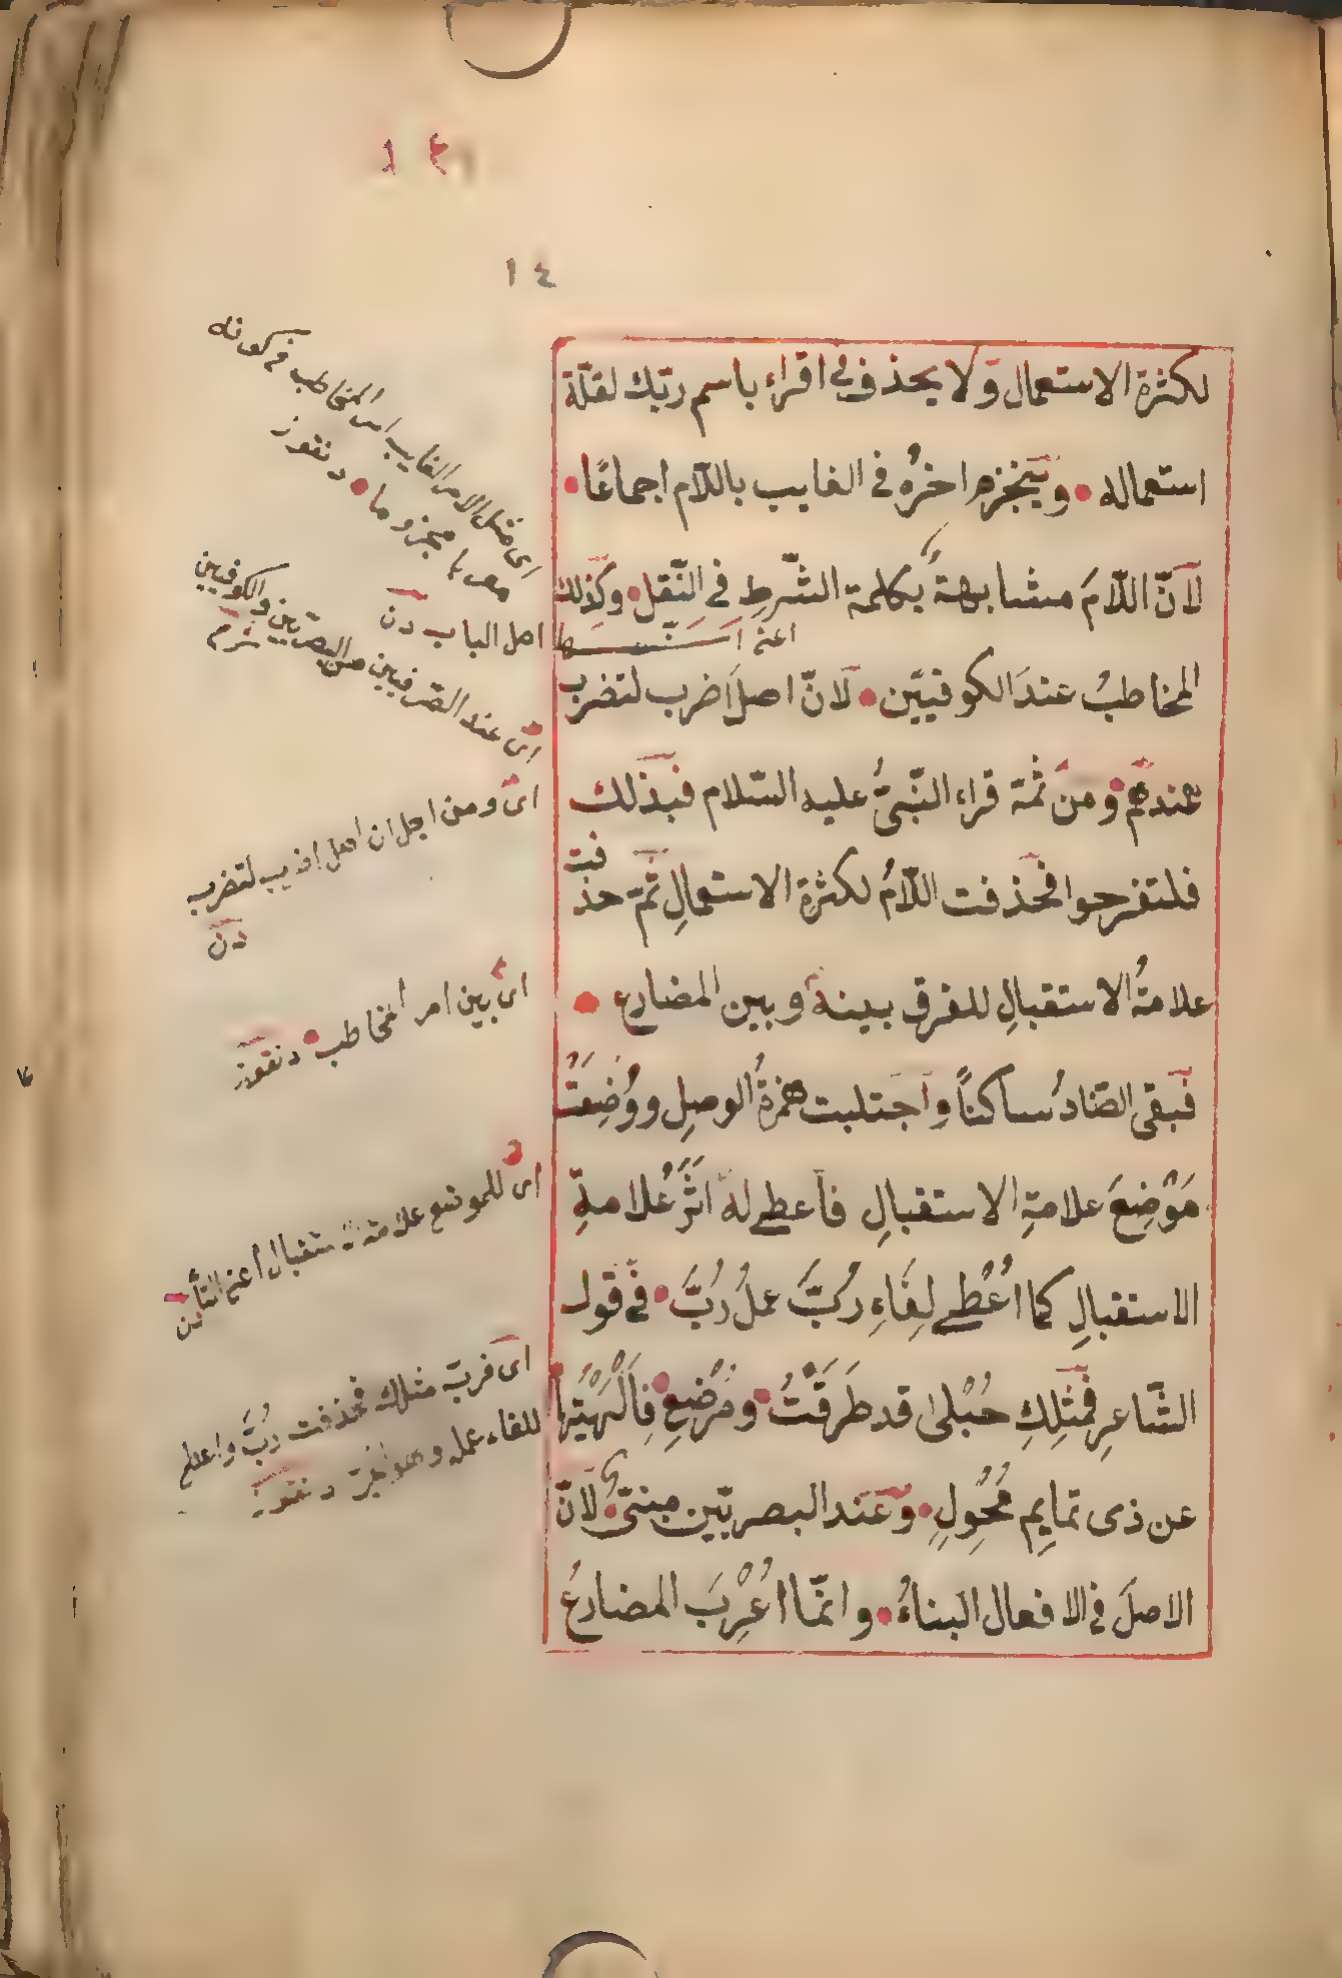 ١٤
١٤
لكثرة الاستعمال ولا يحذف فى اقراء باسم ربّك لقلّة
استعماله • وينجزم اخرُه فى الغايب باللّام اجماعًا •
لانّ اللّامَ مشابهةٌ بكلمة الشّرطِ فى النّقل • وكذلك
المخاطبُ عندَ الكوفيّين • لانّ اصلَ اضرب لتضرب
عندهم • ومن ثمة قراء النّبىُّ عليه السّلام فبذلك
فلتفرحوا فحذفت اللّامُ لكثرة الاستعمالِ ثمّ حذفت
علامةُ الاستقبالِ للفرق بينه وبين المضارع •
فبقى الضّادُ ساكناً واجتلبت همزةُ الوصلِ ووُضِعَتْ
مَوْضِعَ علامةِ الاستقبالِ فاعطى له اثَرُ علامةِ
الاستقبالِ كما اُعْطى لِفَاءِ رُبَّ عملُ رُبَّ • فى قول
الشّاعرِ فمثلِكِ حُبْلى قد طَرَقْتُ • ومُرْضِعٍ • فَاَلْهَيْتُها
عن ذى تمايِم مُحْوِلٍ • وعند البصريّين مبنىٌّ • لانّ
الاصلَ فى الافعال البناءُ • وانّما اُعْرِبَ المضارعُ
اى مثل الامر الغايب امر المخاطب فى كونه
معربا مجزوما • دنقوز
اصل الباب دن
اى عند الصّرفيين من البصريّين والكوفيين
شرح
اى ومن اجل ان اصل اضرب لتضرب
دن
اى بين امر المخاطب • دنقوز
اى للموضع علامة الاستقبال اعنى التاء
دن
اى فربّ مثلك فحذفت رُبَّ واعطى
للفاء عمل دنقوز